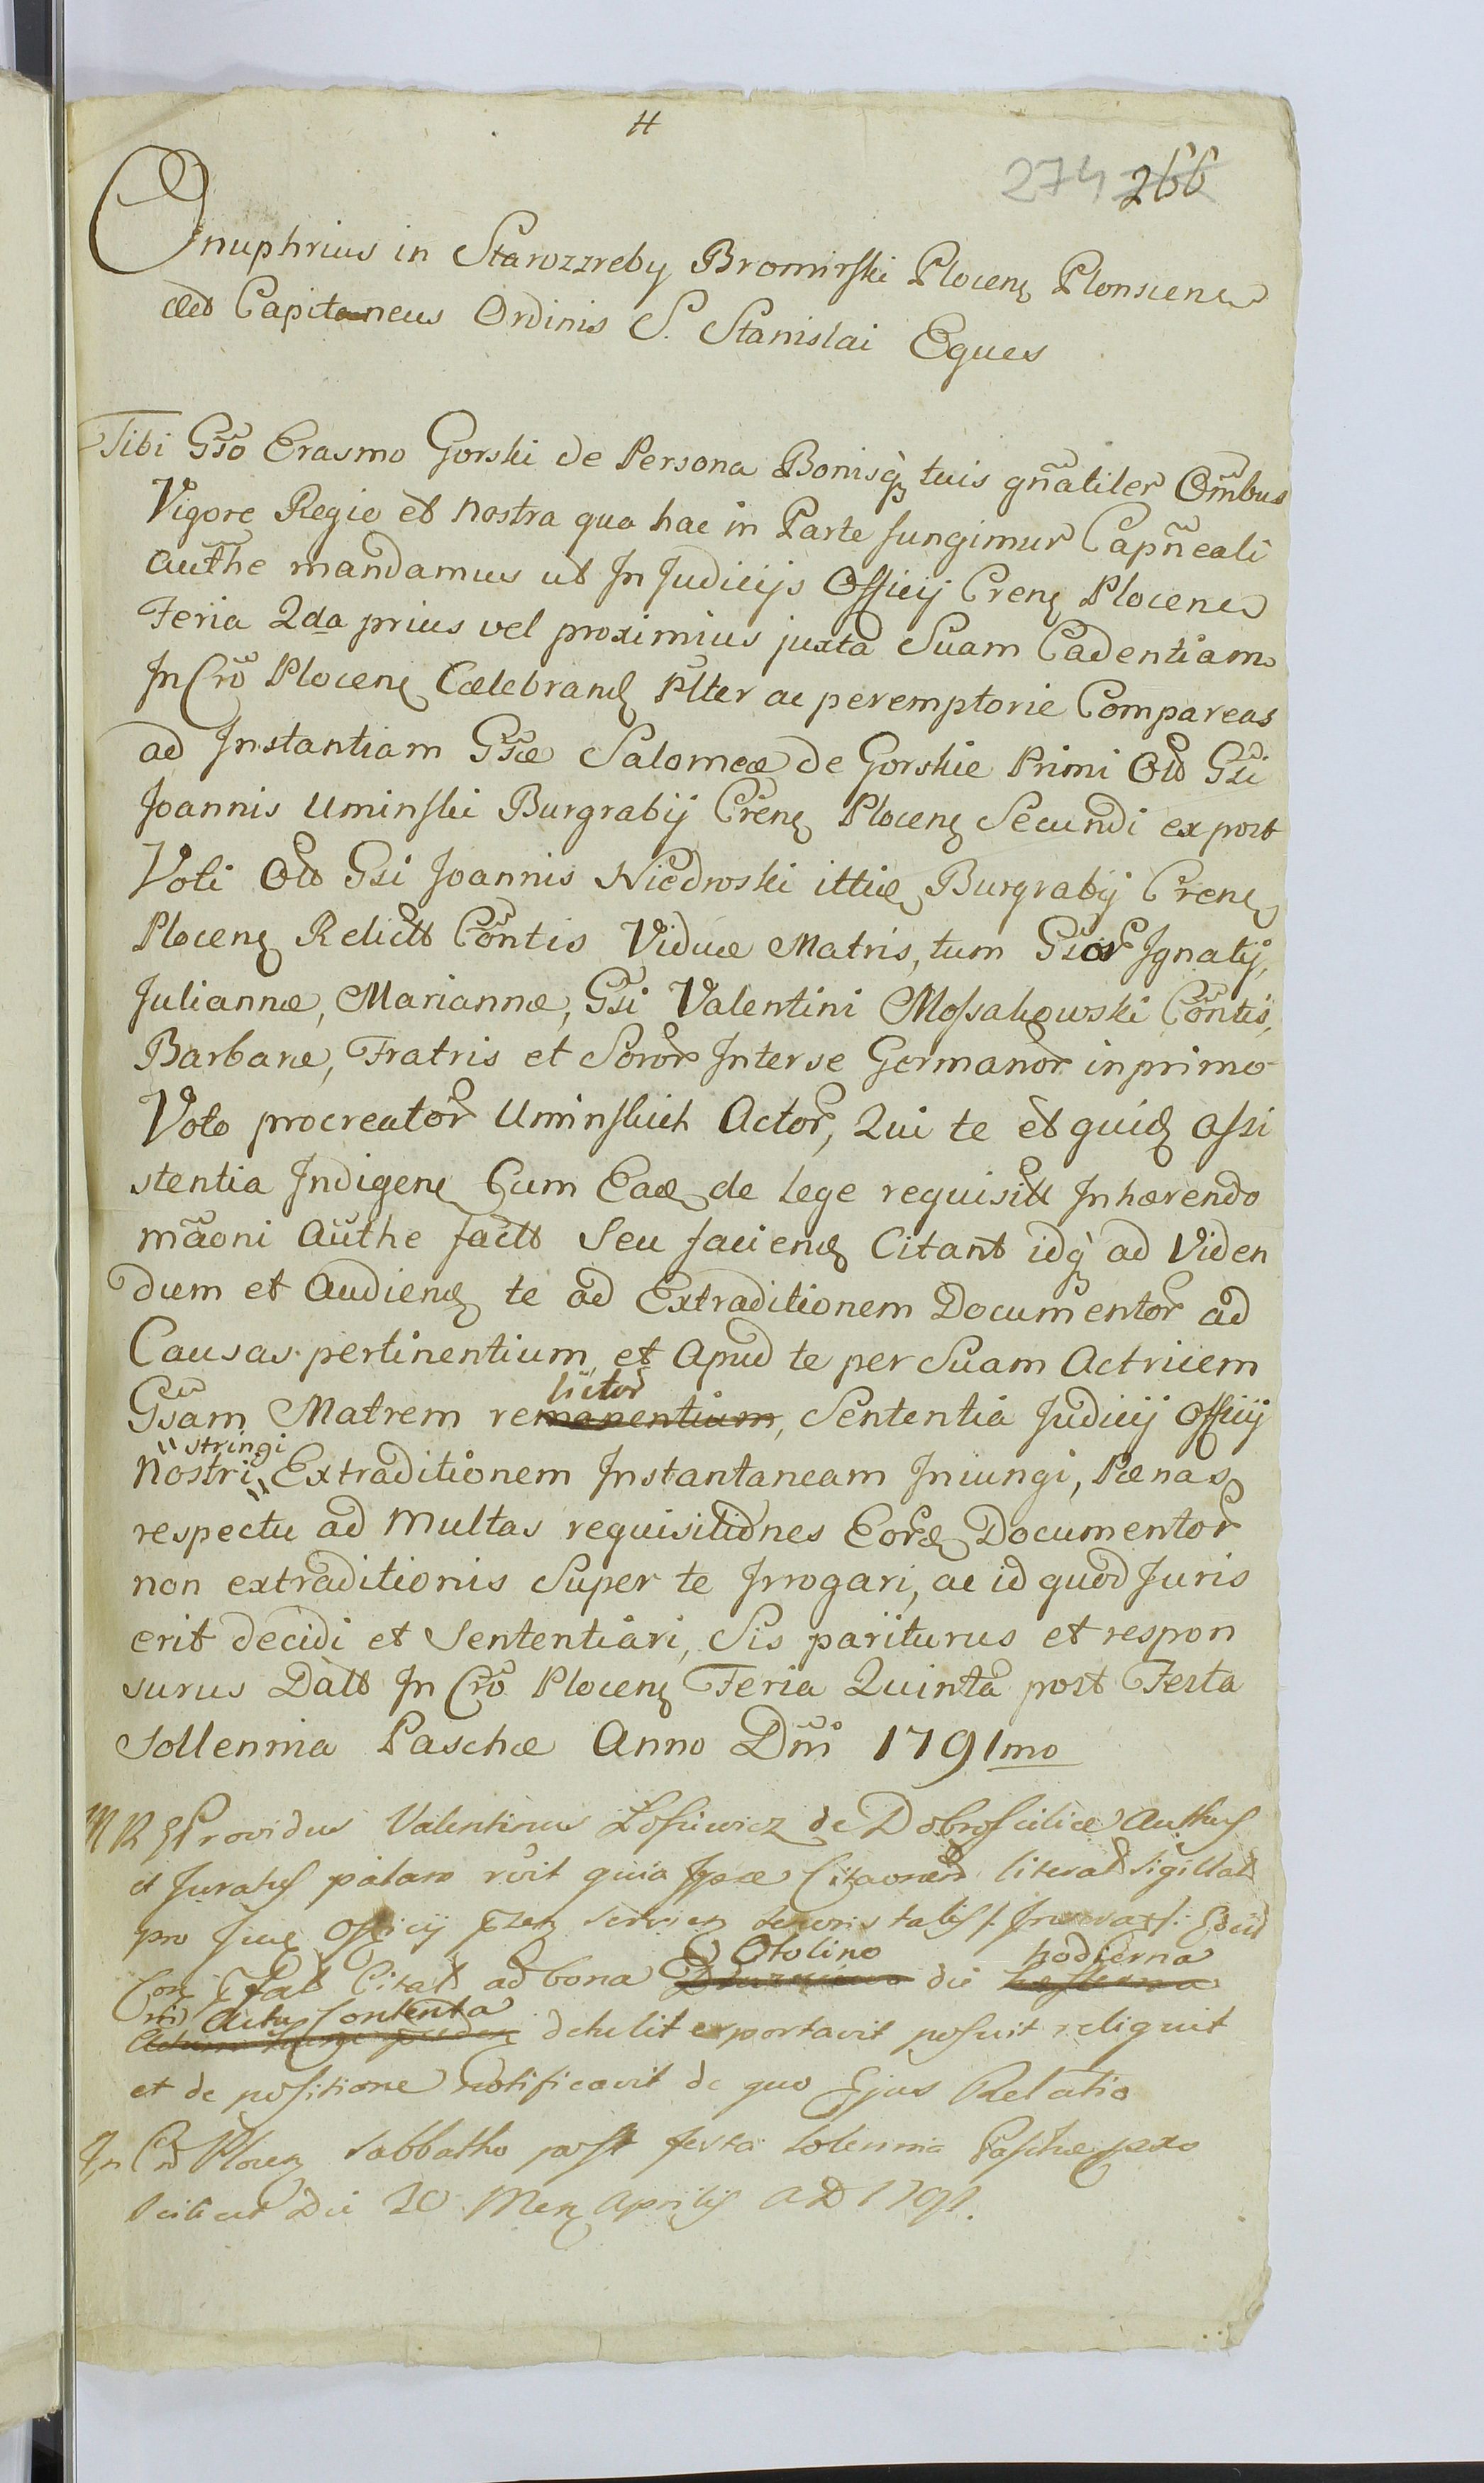 H
274 266
Onuphrius in Starozzreby Bromirski Plocen Plonscen
etc Capitaneus Ordinis S. Stanislai Eques
Tibi Gso Erasmo Gorski de Persona Bonisq tuis gnaliter Omnbus
Vigore Regie et nostra qua hac in Parte fungimur Capneali
Authe mandamus ut In Judicijs Officij Crens Plocens
Feria 2da prius vel proximius juxta Suam Cadentiam
In Cro Plocens Celebrand Plter ac peremptorie Compareas
ad Instantiam Gsæ Salomeæ de Gorskie Primi Olo Gsi
Joannis Uminski Burgrabij Crens Plocens Secundi ex post
Voti Olo Gsi Joannis Niedroski ittid Burgrabij Crens
Plocens Relictt Contis Viduæ Matris, tum Gsior Ignatij,
Juliannæ, Mariannæ, Gsi Valentini Mossakowski Contis,
Barbaræ, Fratris et Soror Inter se Germanor in primo
Voto procreator Uminskich Actor, Qui te et quid assi
stentia Indigen Cum Ead de lege requisitt Inhærendo
mãoni Authe factt Seu faciend Citant idq ad Viden
dum et Audiend te ad Extraditionem Documentor ad
Causas pertinentium et apud te per Suam Actricem
lictor
Gsam Matrem remanentium, Sententia Judicij Officij
stringi
Nostri, Extraditionem Instantaneam Iniungi, Pænas
respectu ad multas requisitiones Eord Documentor
non extraditionis Super te Irrogari, ac id quod Juris
erit decidi et Sententiari, Sis pariturus et respon
surus Datt In Cro Plocens Feria Quinta post Festa
Sollennia Paschæ Anno Dni 1791mo
M R Providus Valentinus Losiewicz de Dobrosielice Authus
et Juratus palam rvit quia Ipse literat sigillat
pro Officij servien tenoris talis
Otolino hodierna
Citat ad bona die
Actu Contenta
detulit exportavit posuit reliquit
et de positione notificavit de quo Ejus Relatio
In Cro Plocen Sabbatho post festa Solennia Paschæ pxo
scilicet Die 30 Mens Aprilis A D 1791.